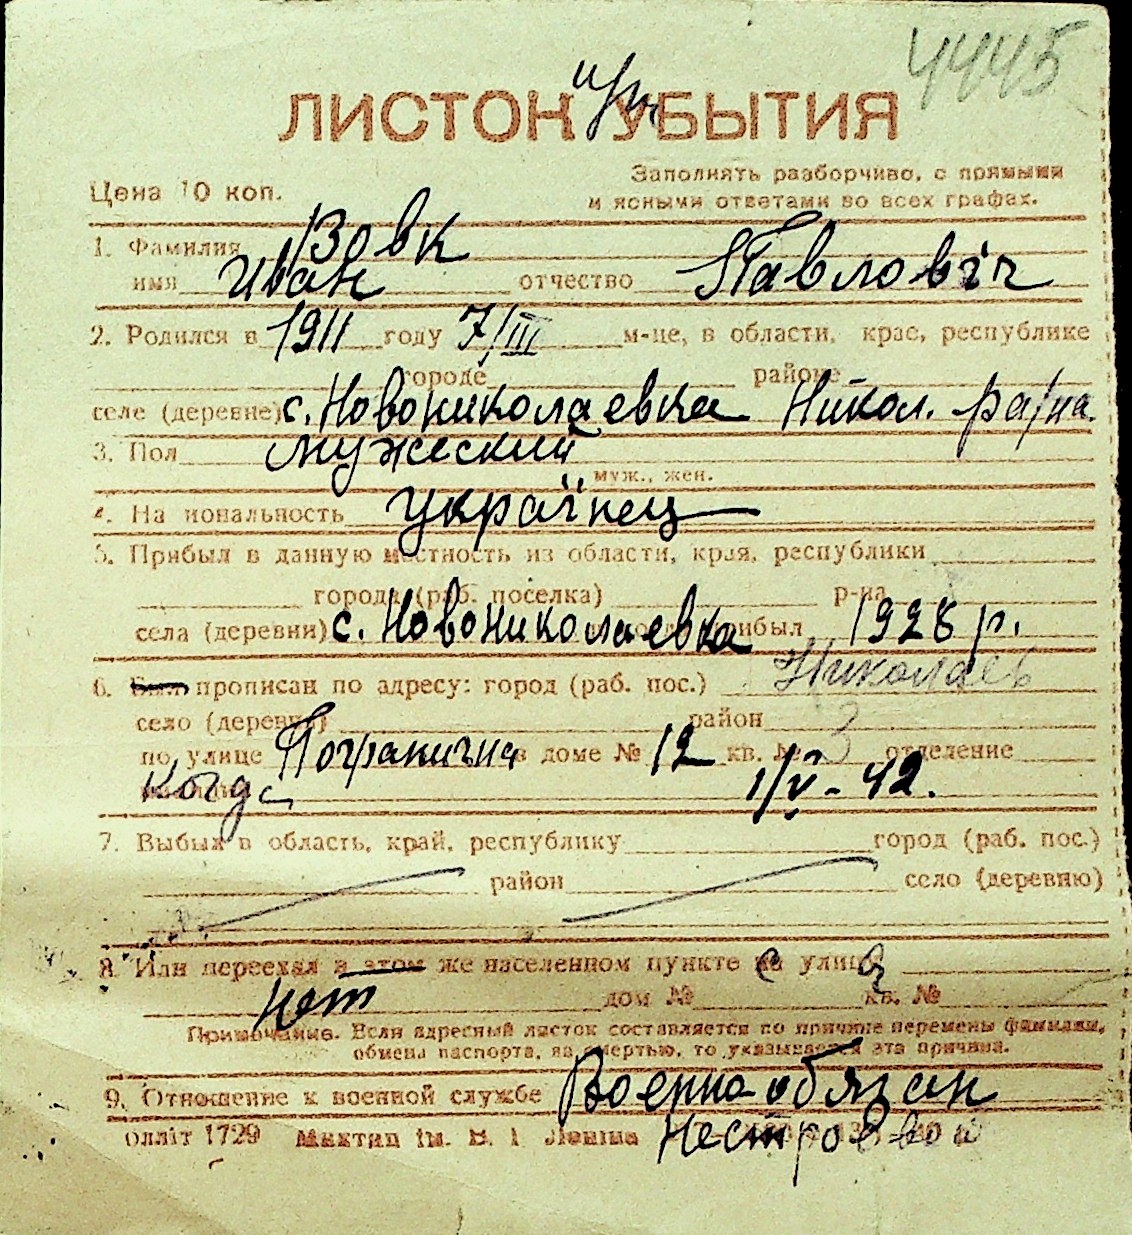 4445
ЛИСТОК УБЫТИЯ
Цена 10 коп.
Заполнять разборчиво, с прямыми
и ясными ответами во всех графах.
1. Фамилия Вовк
имя Иван отчество Павловіч
2. Родился в 1911 году 7/III м-це, в области, крае, республике
городе районе
селе (деревне) с. Новониколаевка Никол. ра/на
3. Пол мужеский
муж., жен.
4. Национальность украінец
5. Прибыл в данную местность из области, края, республики
города (раб. поселка) р-на
села (деревни) с. Новониколаевка прибыл 1928 р.
6. Был прописан по адресу: город (раб. пос.) Николаев
село (деревня) район
по улице Погранична в доме № 12 кв. № 3 отделение
Когда 1/V - 42.
7. Выбыл в область, край, республику город (раб. пос.)
район село (деревню)
8. Или переехал в этом же населенном пункте на улицу
нет дом № кв. №
Примечание. Если адресный листок составляется по причине перемены фамилии,
обмена паспорта, за смертью, то указывается эта причина.
9. Отношение к военной службе Военно-обязан
Облліт 1729 Миктип ім. В. І Леніна Нестроевой